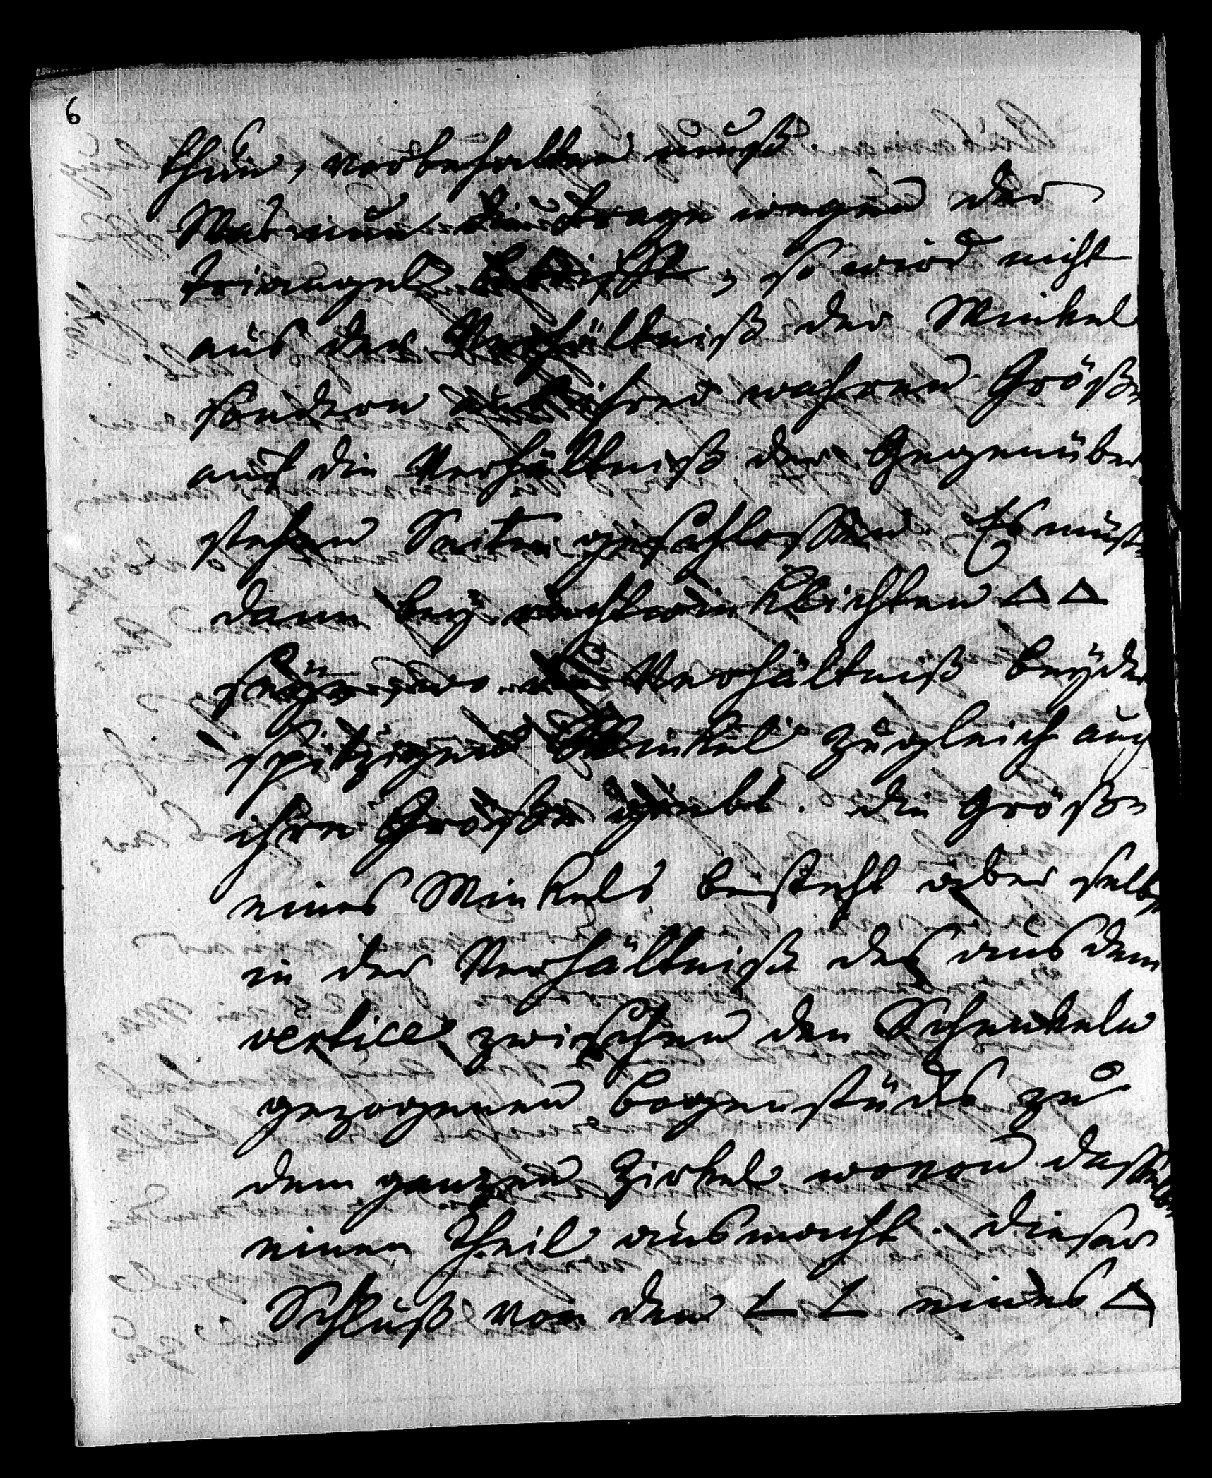 6
thun, vorbehalten muß.
Was nun die Frage wegen der
triangel betrifft, so wird nicht
aus der Verhältniß der Winkel
sondern aus ihrer wahren Größe
auf die Verhältniß der Gegenüber
stehen Seiten geschloßen. Es müste
dann bey rechtwinklichten △△
seyn, wo die Verhältniß beyder
spitzigen Winkel zugleich auch
ihre Größe giebt. die Größe
eines Winkels besteht aber selbst
in der Verhältniß des aus dem
vertice zwischen den Schenkeln
gezogenen bogenstücks zu
dem ganzen Zirkel wovon dasselbe
einen Theil ausmacht. dieser
Schluß von den ∠∠ eines △